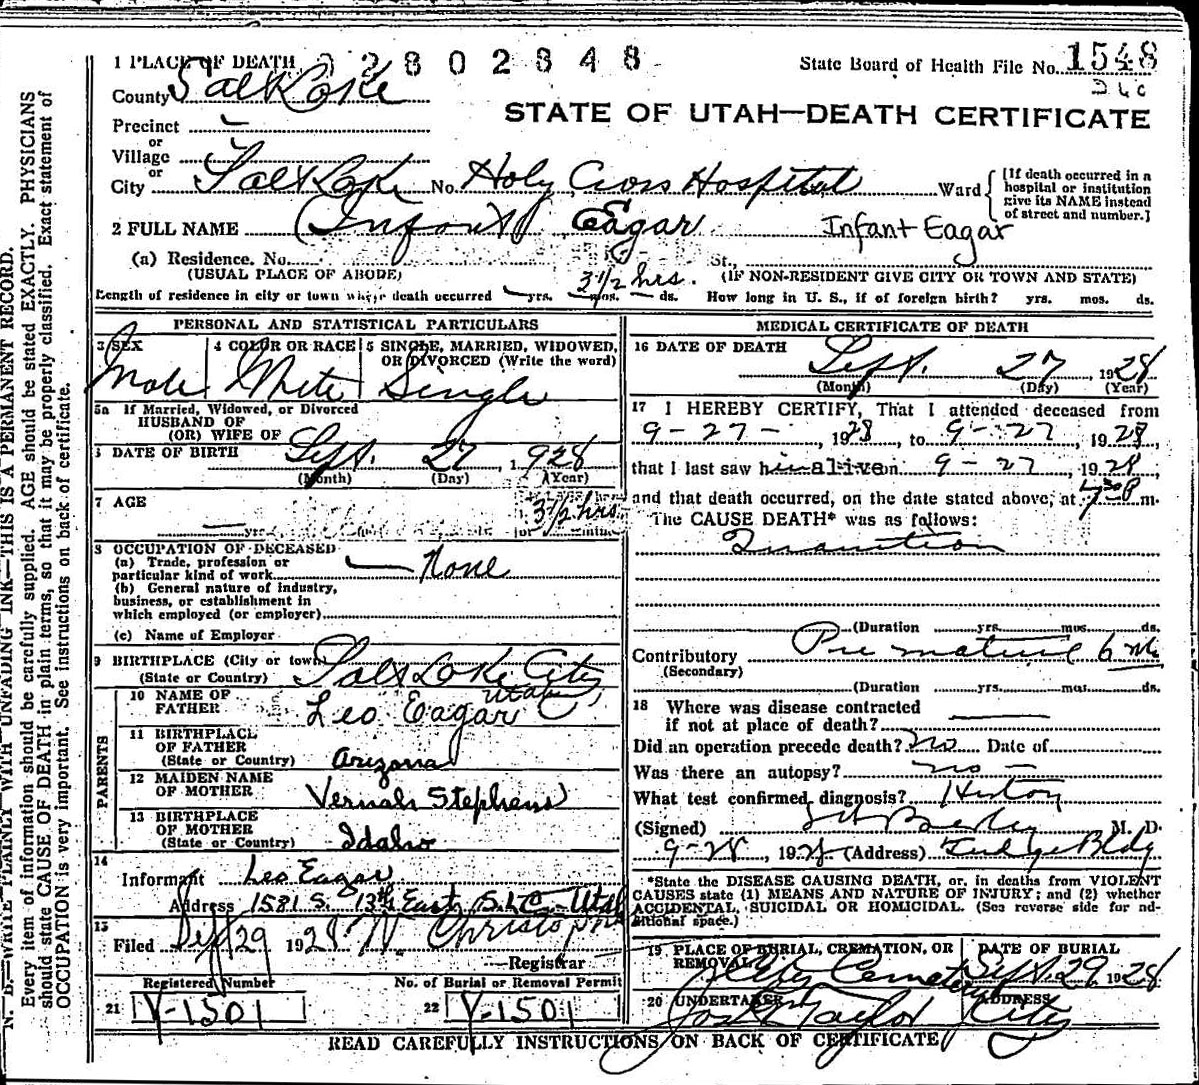 1 PLACE OF DEATH 2802348
State Board of Health File No. 1548
County Salt Lake
STATE OF UTAH—DEATH CERTIFICATE
Precinct —
or
Village
or
City Salt Lake No. Holy Cross Hospital Ward
[If death occurred in a hospital or institution give its NAME instead of street and number.]
2 FULL NAME (Infant) Eagar Infant Eagar
(a) Residence. No. St.,
(USUAL PLACE OF ABODE) 3 1/2 hrs. (IF NON-RESIDENT GIVE CITY OR TOWN AND STATE)
Length of residence in city or town where death occurred — yrs. — mos. — ds. How long in U. S., if of foreign birth? yrs. mos. ds.
PERSONAL AND STATISTICAL PARTICULARS
3 SEX 4 COLOR OR RACE 5 SINGLE, MARRIED, WIDOWED, OR DIVORCED (Write the word)
Male White Single
5a If Married, Widowed, or Divorced
HUSBAND OF
(OR) WIFE OF
6 DATE OF BIRTH Sept. 27 1928
(Month) (Day) (Year)
7 AGE
— yrs. 3 1/2 hrs
8 OCCUPATION OF DECEASED
(a) Trade, profession or
particular kind of work — None
(b) General nature of industry,
business, or establishment in
which employed (or employer)
(c) Name of Employer
9 BIRTHPLACE (City or town) Salt Lake City
(State or Country) Utah
PARENTS
10 NAME OF FATHER Leo Eagar
11 BIRTHPLACE OF FATHER
(State or Country) Arizona
12 MAIDEN NAME OF MOTHER Vernah Stephens
13 BIRTHPLACE OF MOTHER
(State or Country) Idaho
14
Informant Leo Eagar
Address 1581 S. 13th East, S.L.C. Utah
15
Filed Sept 29 1928
Registrar
Registered Number No. of Burial or Removal Permit
21 V-1501 22 V-1501
MEDICAL CERTIFICATE OF DEATH
16 DATE OF DEATH
Sept. 27, 1928
(Month) (Day) (Year)
17 I HEREBY CERTIFY, That I attended deceased from
9-27-, 1928, to 9-27, 1928,
that I last saw him alive on 9-27, 1928
and that death occurred, on the date stated above, at m.
The CAUSE DEATH* was as follows:
Inanition
(Duration yrs. mos. ds.
Contributory Premature 6
(Secondary)
(Duration yrs. mos. ds.
18 Where was disease contracted
if not at place of death?
Did an operation precede death? No Date of
Was there an autopsy? no —
What test confirmed diagnosis? History
(Signed) M. D.
9-28, 1928 (Address) Judge Bldg
*State the DISEASE CAUSING DEATH, or, in deaths from VIOLENT
CAUSES state (1) MEANS AND NATURE OF INJURY; and (2) whether
ACCIDENTAL, SUICIDAL OR HOMICIDAL. (See reverse side for ad-
ditional space.)
19 PLACE OF BURIAL, CREMATION, OR REMOVAL DATE OF BURIAL
City Cemetery Sept. 29 1928
20 UNDERTAKER ADDRESS
Taylor City
READ CAREFULLY INSTRUCTIONS ON BACK OF CERTIFICATE
N. B.—WRITE PLAINLY WITH UNFADING INK—THIS IS A PERMANENT RECORD.
Every item of information should be carefully supplied. AGE should be stated EXACTLY. PHYSICIANS
should state CAUSE OF DEATH in plain terms, so that it may be properly classified. Exact statement of
OCCUPATION is very important. See instructions on back of certificate.